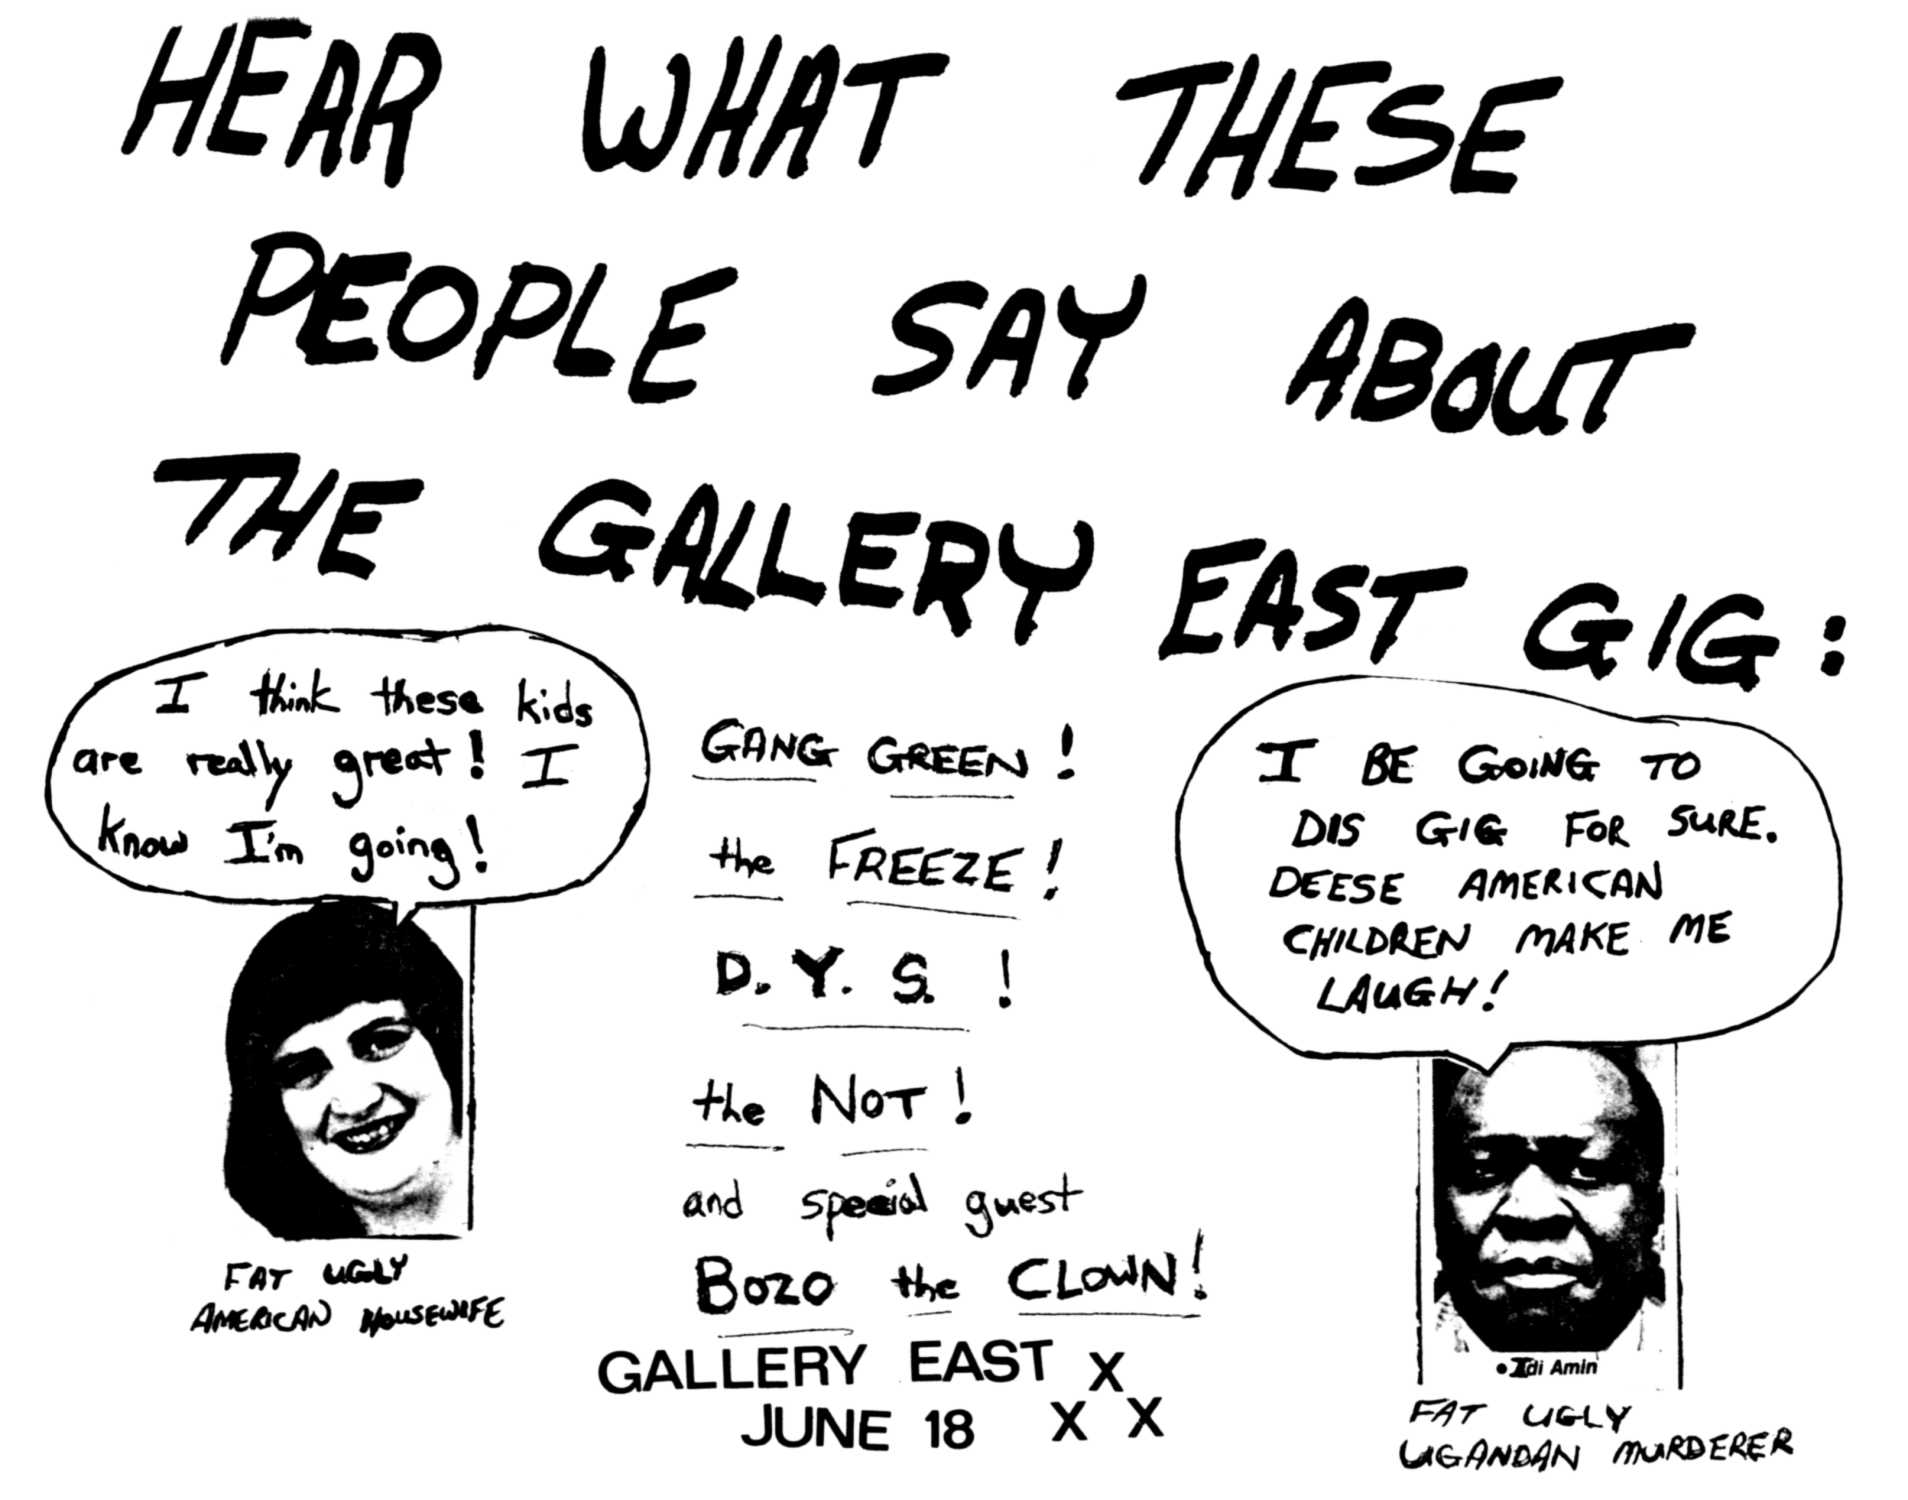 HEAR WHAT THESE
PEOPLE SAY ABOUT
THE GALLERY EAST GIG:
I think these kids
are really great! I
know I'm going!
FAT UGLY
AMERICAN HOUSEWIFE
GANG GREEN!
the FREEZE!
D.Y.S.!
the NOT!
and special guest
BOZO the CLOWN!
GALLERY EAST X
JUNE 18 X X
I BE GOING TO
DIS GIG FOR SURE.
DEESE AMERICAN
CHILDREN MAKE ME
LAUGH!
• Idi Amin
FAT UGLY
UGANDAN MURDERER